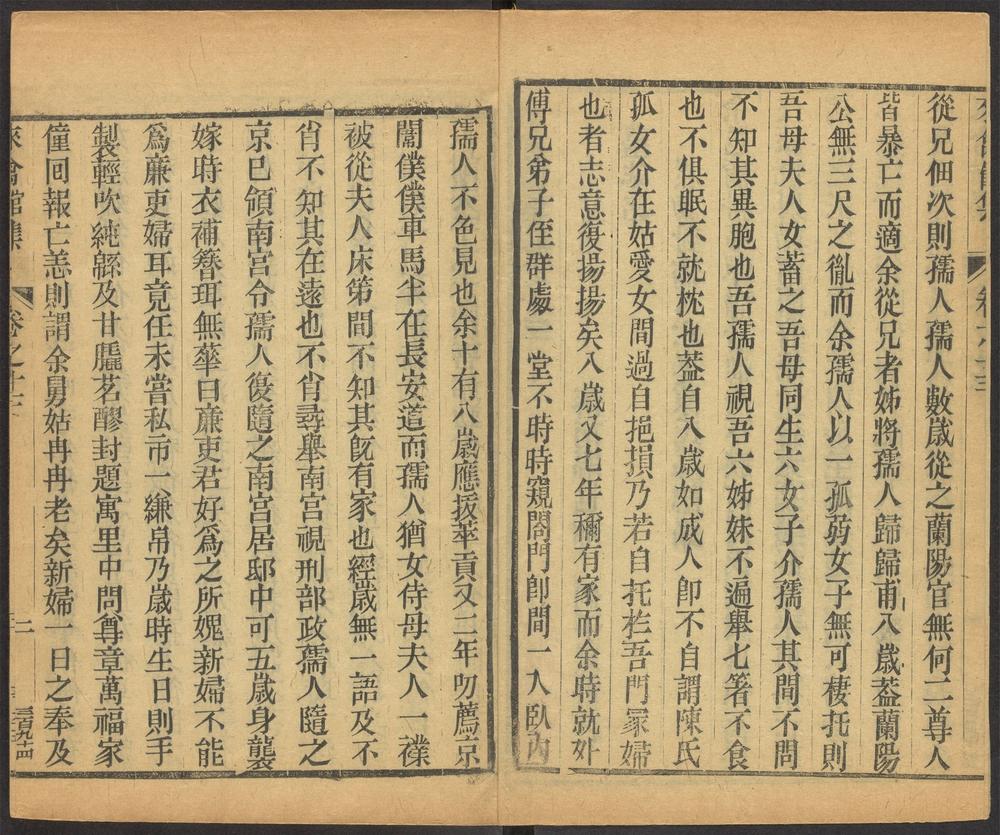 來禽館集
卷
從兄佃次則孺人孺人數歲從之蘭陽官無何二尊人
皆暴亡而適余從兄者姊將孺人歸歸甫八歲葢蘭陽
公無三尺之胤而余孺人以一孤弱女子無可棲托則
吾母夫人女蓄之吾母同生六女子介孺人其間不問
不知其異胞也吾孺人視吾六姊妹不遍舉七箸不食
也不俱眠不就枕也葢自八歲如成人卽不自謂陳氏
孤女介在姑愛女間過自挹損乃若自托於吾門冢婦
也者志意復揚揚矣八歲又七年禰有家而余時就外
傅兄弟子侄群處一堂不時時窺閤門卽間一入臥內
孺人不色見也余十有八歲應拔萃貢又二年叨薦京
闈僕僕車馬半在長安道而孺人猶女侍母夫人一襆
被從夫人床笫間不知其旣有家也經歲無一語及不
肖不知其在遠也不肖尋舉南宮視刑部政孺人隨之
京已領南宮令孺人復隨之南宮居邸中可五歲身襲
嫁時衣補簪珥無華曰廉吏君好爲之所娓新婦不能
爲廉吏婦耳竟任未嘗私帀一縑帛乃歲時生日則手
製輕吹純緜及甘毳茗醪封題寓里中問尊章萬福家
僮回報亡恙則謂余舅姑冉冉老矣新婦一日之奉及
來禽館集
卷之十六
二
三百九十四